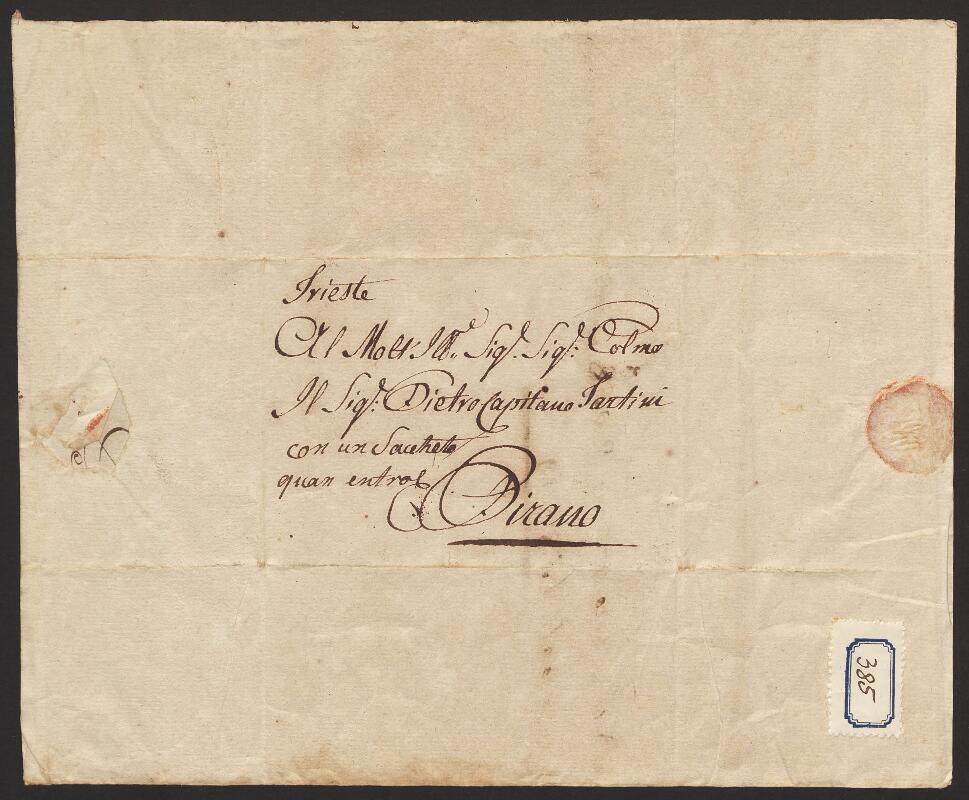 Trieste
Al Molt' Ill.re Sig.r Sig.r Colmo
Il Sig.r Pietro Capitano Tartini
con un Sacheto
quan entro
Pirano
385